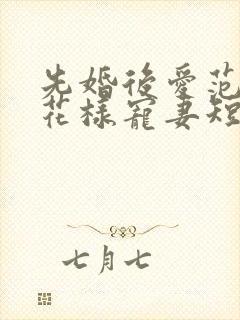 先婚後愛范
花樣寵妻短
七月七